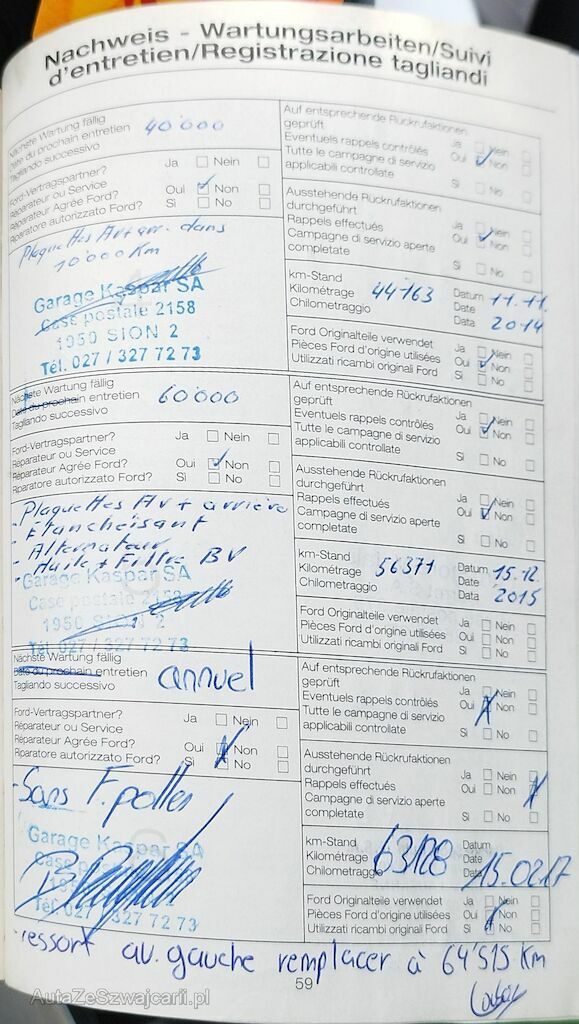 Nachweis - Wartungsarbeiten/Suivi
d'entretien/Registrazione tagliandi
Nächste Wartung fällig
Date du prochain entretien
Tagliando successivo
40'000
Ford-Vertragspartner?
Réparateur ou Service
Réparateur Agréé Ford?
Riparatore autorizzato Ford?
Ja Nein
Oui Non
Sì No
Plaquettes Av+arr. dans
10'000 Km
Garage Kaspar SA
Case postale 2158
1950 SION 2
Tél. 027 / 327 72 73
Auf entsprechende Rückrufaktionen
geprüft
Eventuels rappels contrôlés
Tutte le campagne di servizio
applicabili controllate
Ja Nein
Oui Non
Sì No
Ausstehende Rückrufaktionen
durchgeführt
Rappels effectués
Campagne di servizio aperte
completate
Ja Nein
Oui Non
Sì No
km-Stand
Kilométrage
Chilometraggio
44163
Datum
Date
Data
11.11.
2014
Ford Originalteile verwendet
Pièces Ford d'origine utilisées
Utilizzati ricambi originali Ford
Ja Nein
Oui Non
Sì No
Nächste Wartung fällig
Date du prochain entretien
Tagliando successivo
60'000
Ford-Vertragspartner?
Réparateur ou Service
Réparateur Agréé Ford?
Riparatore autorizzato Ford?
Ja Nein
Oui Non
Sì No
- Plaquettes Av + arrière
- Etancheisant
- Alternateur
- Huile + Filtre BV
Garage Kaspar SA
Case postale 2158
1950 SION 2
Tél. 027 / 327 72 73
Auf entsprechende Rückrufaktionen
geprüft
Eventuels rappels contrôlés
Tutte le campagne di servizio
applicabili controllate
Ja Nein
Oui Non
Sì No
Ausstehende Rückrufaktionen
durchgeführt
Rappels effectués
Campagne di servizio aperte
completate
Ja Nein
Oui Non
Sì No
km-Stand
Kilométrage
Chilometraggio
56371
Datum
Date
Data
15.12.
2015
Ford Originalteile verwendet
Pièces Ford d'origine utilisées
Utilizzati ricambi originali Ford
Ja Nein
Oui Non
Sì No
Nächste Wartung fällig
Date du prochain entretien
Tagliando successivo
annuel
Ford-Vertragspartner?
Réparateur ou Service
Réparateur Agréé Ford?
Riparatore autorizzato Ford?
Ja Nein
Oui Non
Sì No
- Sans F. pollen
Garage Kaspar SA
Case postale
Tél. 027 / 327 72 73
Auf entsprechende Rückrufaktionen
geprüft
Eventuels rappels contrôlés
Tutte le campagne di servizio
applicabili controllate
Ja Nein
Oui Non
Sì No
Ausstehende Rückrufaktionen
durchgeführt
Rappels effectués
Campagne di servizio aperte
completate
Ja Nein
Oui Non
Sì No
km-Stand
Kilométrage
Chilometraggio
63128
Datum
Date
Data
15.02.17
Ford Originalteile verwendet
Pièces Ford d'origine utilisées
Utilizzati ricambi originali Ford
Ja Nein
Oui Non
Sì No
- ressort av. gauche remplacer à 64'515 Km
59
AutaZeSzwajcarii.pl